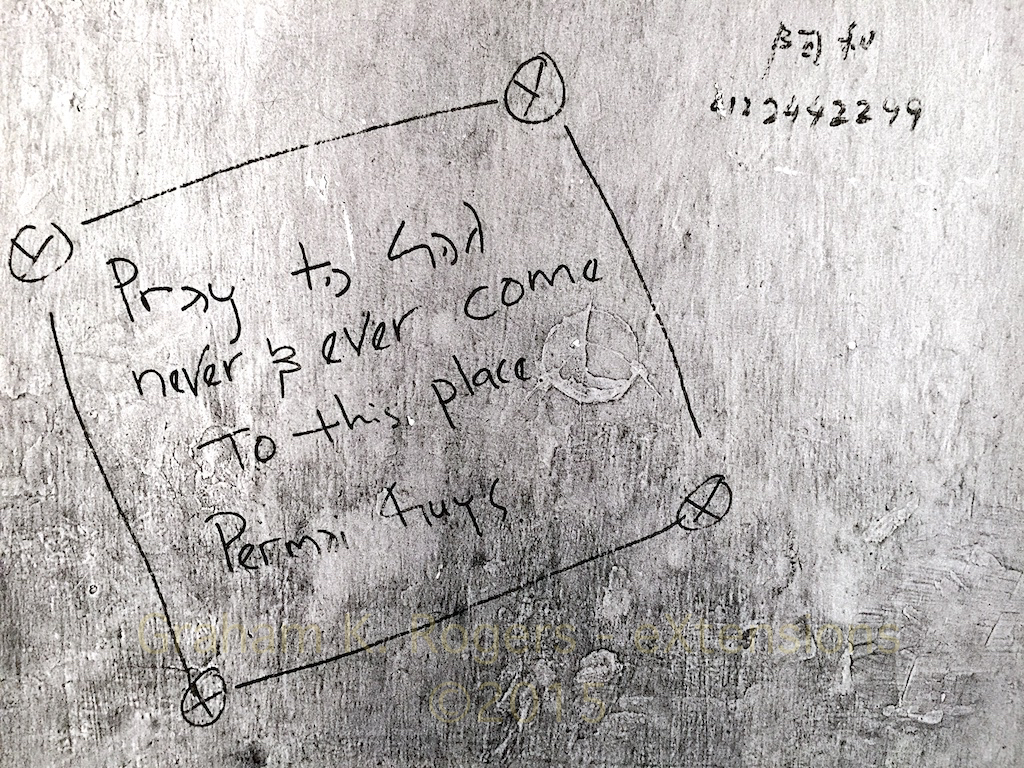 Pray to God
never & ever come
To this place
Permai Guys
阿和
2442299
Graham K. Rogers - eXtensions
©2015